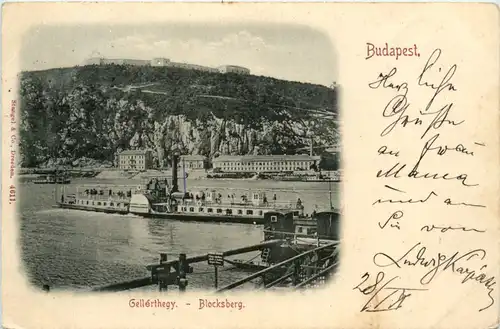 Budapest.
Stengel & Co., Dresden. 4611.
Herzliche
Grüsse
an Frau
Mama
und an
Sie von
Ludwig
28/
Gellérthegy. - Blocksberg.